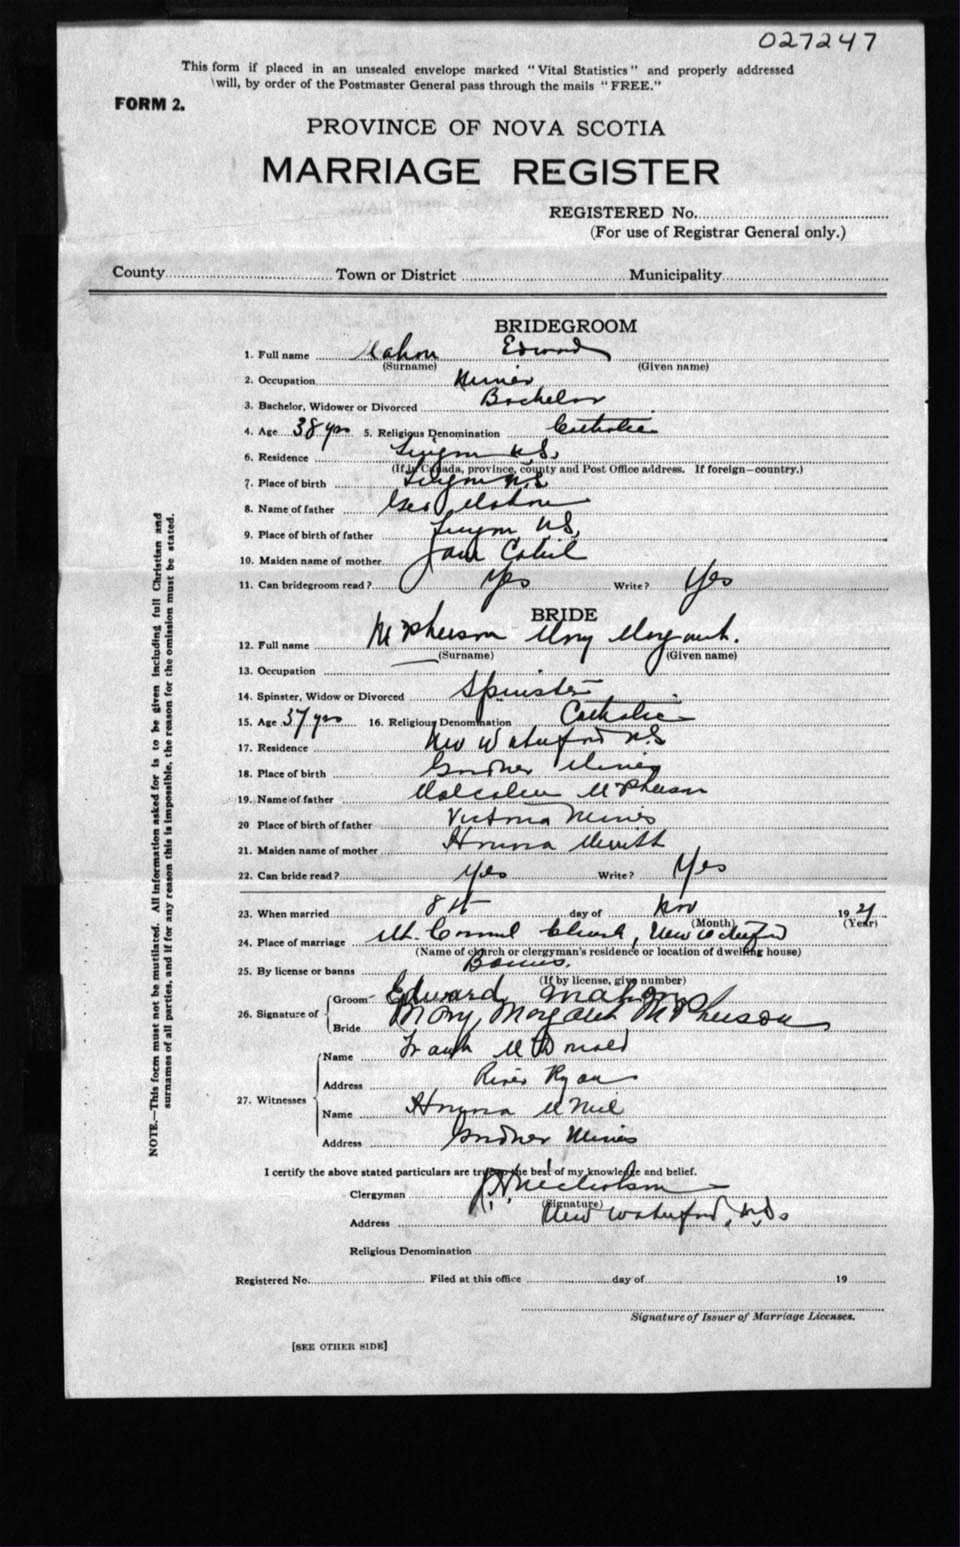 027247
This form if placed in an unsealed envelope marked "Vital Statistics" and properly addressed
will, by order of the Postmaster General pass through the mails "FREE."
FORM 2.
PROVINCE OF NOVA SCOTIA
MARRIAGE REGISTER
REGISTERED No.
(For use of Registrar General only.)
County Town or District Municipality
BRIDEGROOM
1. Full name Mahon Edward
(Surname) (Given name)
2. Occupation Miner
3. Bachelor, Widower or Divorced Bachelor
4. Age 38 yrs 5. Religious Denomination Catholic
6. Residence N.S.
(If in Canada, province, county and Post Office address. If foreign—country.)
7. Place of birth N.S.
8. Name of father Geo Mahon
9. Place of birth of father N.S.
10. Maiden name of mother Jane
11. Can bridegroom read? Yes Write? Yes
BRIDE
12. Full name McPherson Mary Margaret.
(Surname) (Given name)
13. Occupation —
14. Spinster, Widow or Divorced Spinster
15. Age 37 yrs 16. Religious Denomination Catholic
17. Residence New Waterford N.S
18. Place of birth Gardner Mines
19. Name of father Malcolm McPherson
20 Place of birth of father Victoria Mines
21. Maiden name of mother Merritt
22. Can bride read? Yes Write? Yes
23. When married 8th day of Nov 1921
(Month) (Year)
24. Place of marriage Mt. Carmel Church, New Waterford
(Name of church or clergyman's residence or location of dwelling house)
25. By license or banns Banns.
(If by license, give number)
26. Signature of Groom Edward Mahon
Bride Mary Margaret McPherson
27. Witnesses Name Frank McDonald
Address River Ryan
Name McNeil
Address Gardner Mines
I certify the above stated particulars are true to the best of my knowledge and belief.
Clergyman J.H. Nicholson
(Signature)
Address New Waterford, N.S
Religious Denomination
Registered No. Filed at this office day of 19
Signature of Issuer of Marriage Licenses.
[SEE OTHER SIDE]
NOTE.—This form must not be mutilated. All information asked for is to be given including full Christian and
surnames of all parties, and if for any reason this is impossible, the reason for the omission must be stated.